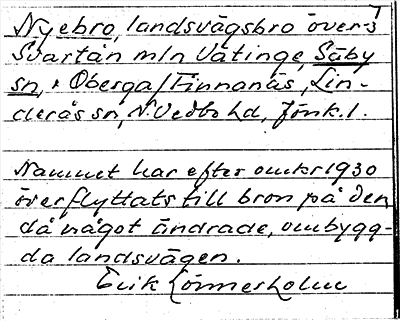 7
Nyebro, landsvägsbro över
Svartån mln Vätinge, Säby
sn, & Oberga/Finnanäs, Lin-
derås sn, N. Vedbo hd, Jönk. l.
Namnet har efter omkr 1930
överflyttats till bron på den
då något ändrade, ombygg-
da landsvägen.
Erik Lönnerholm